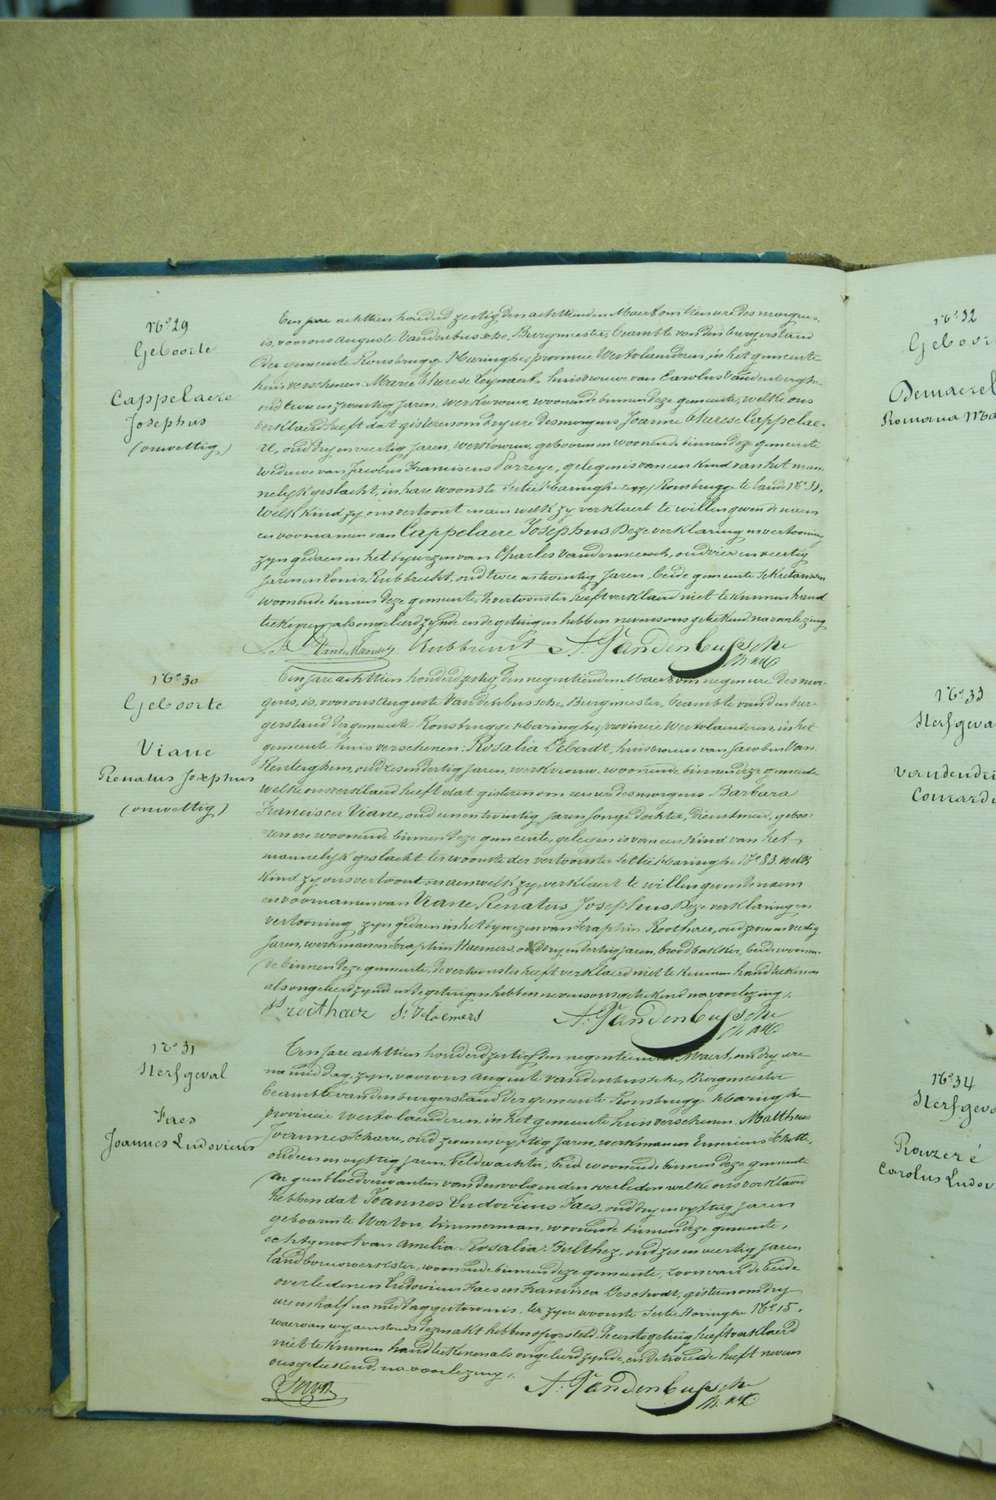 N° 29
Geboorte
Cappelaere
Josephus
(onwettig)
Een jare achttien honderd zestig, den achttienden Maert om tien ure des morgens
is, voor ons Auguste Vandenbussche, Burgmeester, beambte van den burgerstand
der gemeente Rousbrugge Haringhe, provincie Westvlaenderen, in het gemeente
huis verschenen Marie Therese Leynaert, huisvrouwe van Carolus Vandenberghe
oud twee en zeventig jaren, werkvrouw, woonende binnen deze gemeente, welke ons
verklaerd heeft dat gisteren om dry ure des morgens Joanne Therese Cappelae-
re, oud dry en veertig jaren, werkvrouw, geboren en woonende binnen deze gemeente
weduwe van Jacobus Franciscus Porreye, gelegen is van een kind van het man-
nelijk geslacht, in hare woonste Sectie Haringhe Rousbrugge
welk kind zy ons vertoont en aen welk zy verklaert te willen geven de naem
en voornamen van Cappelaere Josephus Deze verklaring en vertooning
zyn gedaen in het bywezen van Charles Vandromme, oud vier en veertig
jaren en Louis Rubbrecht, oud twee en twintig jaren, beide gemeente Sekretarissen
woonende binnen deze gemeente, de vertoonster heeft verklaerd niet te kunnen hand
teekenen als ongeleerd zynde en de getuigen hebben nevens ons geteekend na voorlezing
Rubbrecht A: Vandenbussche
N° 30
Geboorte
Viane
Renatus Josephus
(onwettig)
Een jare achttien honderd zestig, den negentienden Maert om negen ure des mor-
gens, is, voor ons Auguste Vandenbussche, Burgmeester, beambte van den bur-
gerstand der gemeente Rousbrugge Haringhe, provincie Westvlaenderen, in het
gemeente huis verschenen: Rosalia Liebardt, huisvrouw van Jacobus Van
Kenterghem, oud zes en dertig jaren, werkvrouw, woonende binnen deze gemeente
welke ons verklaerd heeft dat gisteren om een ure des morgens Barbara
Francisca Viane, oud een en twintig jaren jonge dochter, dienstmeid, gebo-
ren en woonende binnen deze gemeente, gelegen is van een kind van het
mannelijk geslacht ter woonste der vertoonster Sectie Haringhe N° 83 welk
kind zy ons vertoont en aen welk zy verklaert te willen geven de naem
en voornamen van Viane Renatus Josephus Deze verklaring en
vertooning zyn gedaen in het bywezen van Seraphin Roothaer, oud zeven en veertig
jaren, werkman en Seraphin Haemers, oud dry en dertig jaren, broodbakker, beide woonen-
de binnen deze gemeente, de vertoonster heeft verklaerd niet te kunnen handteekenen
als ongeleerd zynde en de getuigen hebben nevens ons geteekend na voorlezing.
S. Haemers A: Vandenbussche
N° 31
Sterfgeval
Faes
Joannes Ludovicus
Een jare achttien honderd zestig, den negentienden Maert, om dry ure
na middag, zyn, voor ons Auguste Vandenbussche, Burgmeester
beambte van den burgerstand der gemeente Rousbrugge Haringhe
provincie Westvlaenderen, in het gemeente huis verschenen. Mattheus
Joannes oud zeven en vyftig jaren, werkman en
oud en vyftig jaren, veldwachter, beide woonende binnen deze gemeente
en geen bloedverwanten van den volgenden overleden welke ons verklaerd
hebben dat Joannes Ludovicus Faes, oud dry en vyftig jaren
geboren te Watou, timmerman, woonende binnen deze gemeente,
echtgenoot van Amelia Rosalia oud zes en veertig jaren
landbouwwerkster, woonende binnen deze gemeente, zoon van de beide
overledenen Ludovicus Faes en Francisca gisteren om dry
ure en half na middag gestorven is, ter zyne woonste Sectie Haringhe N° 15,
waervan wy aenstonds dezen akt hebben opgesteld. De eerste getuige heeft verklaerd
niet te kunnen handteekenen als ongeleerd zynde, en de tweede heeft nevens
ons geteekend, na voorlezing.
A: Vandenbussche
N° 32
Geboor
Demaerel
Romania Ma
N° 33
Sterfgeva
Vandendri
Conrard
N° 34
Sterfgeva
Rouzeré
Carolus Ludov